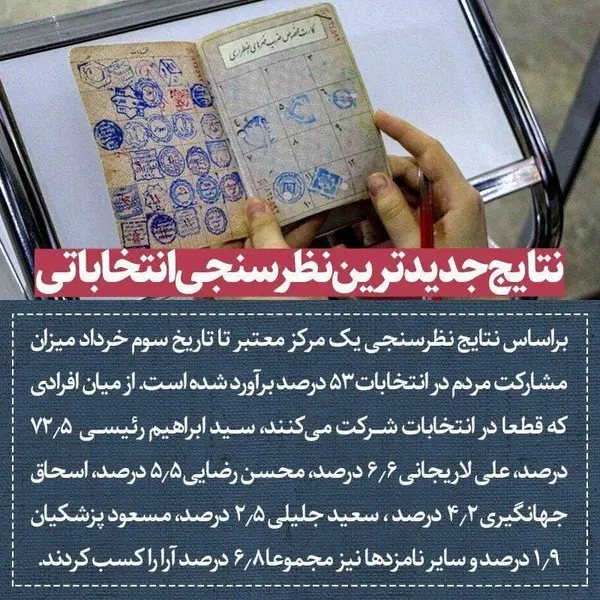 کارت مخصوص ضرب مهرهای اضطراری
۲
۳
۵
۶
۷
۸
۹
۱۰
۱۲
نتایج جدیدترین نظرسنجی انتخاباتی
براساس نتایج نظرسنجی یک مرکز معتبر تا تاریخ سوم خرداد میزان
مشارکت مردم در انتخابات ۵۳ درصد برآورد شده است. از میان افرادی
که قطعا در انتخابات شرکت می‌کنند، سید ابراهیم رئیسی ۷۲٫۵
درصد، علی لاریجانی ۶٫۶ درصد، محسن رضایی ۵٫۵ درصد، اسحاق
جهانگیری ۴٫۲ درصد، سعید جلیلی ۲٫۵ درصد، مسعود پزشکیان
۱٫۹ درصد و سایر نامزدها نیز مجموعا ۶٫۸ درصد آرا را کسب کردند.